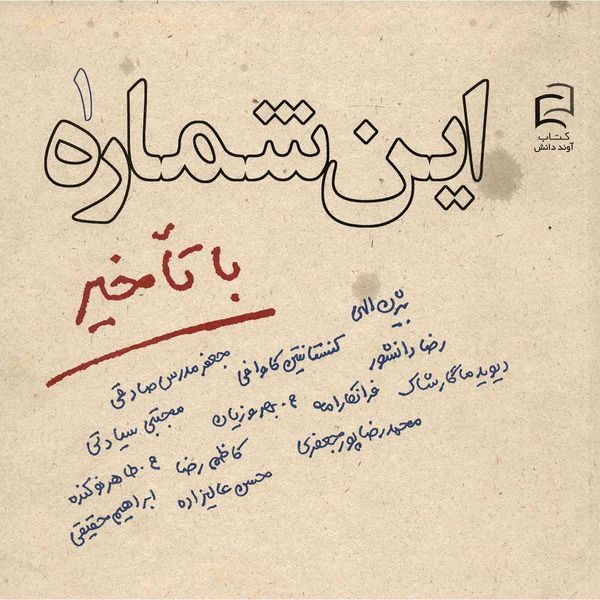 این شماره ۱
کتاب
آوند دانش
با تأخیر
بیژن الهی
جعفر مدرس صادقی کنستانتین کاوافی رضا دانشور
مجتبی سیادتی ع. بهروزیان فرانتفارامه دیوید ماگارشاک
ع. طاهر نوکنده کاظم رضا محمدرضا پورجعفری
ابراهیم حقیقی محسن عالیزاده